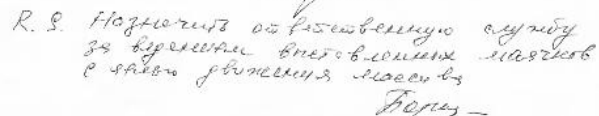 R. S. Назначить ответственную службу
за ведением выставленных маячков
с целью движения массива